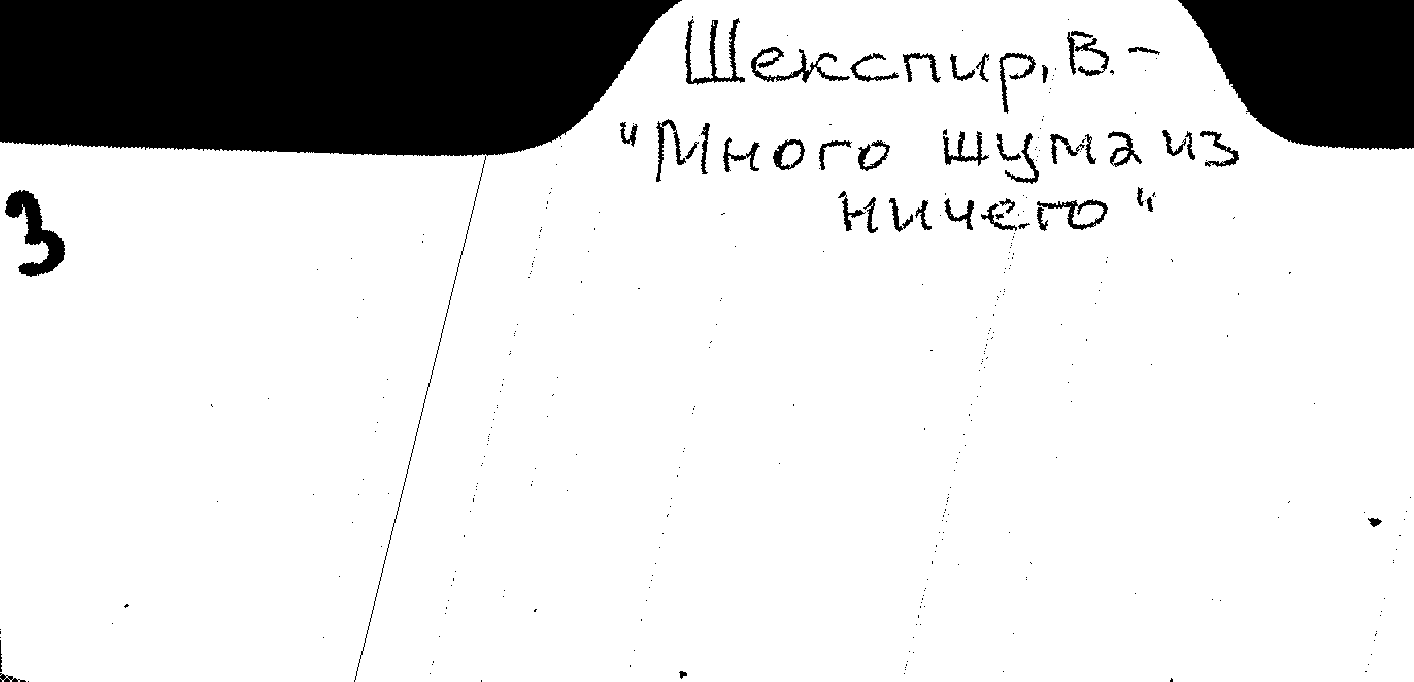 Шекспир, В. -
"Много шума из
ничего"
3